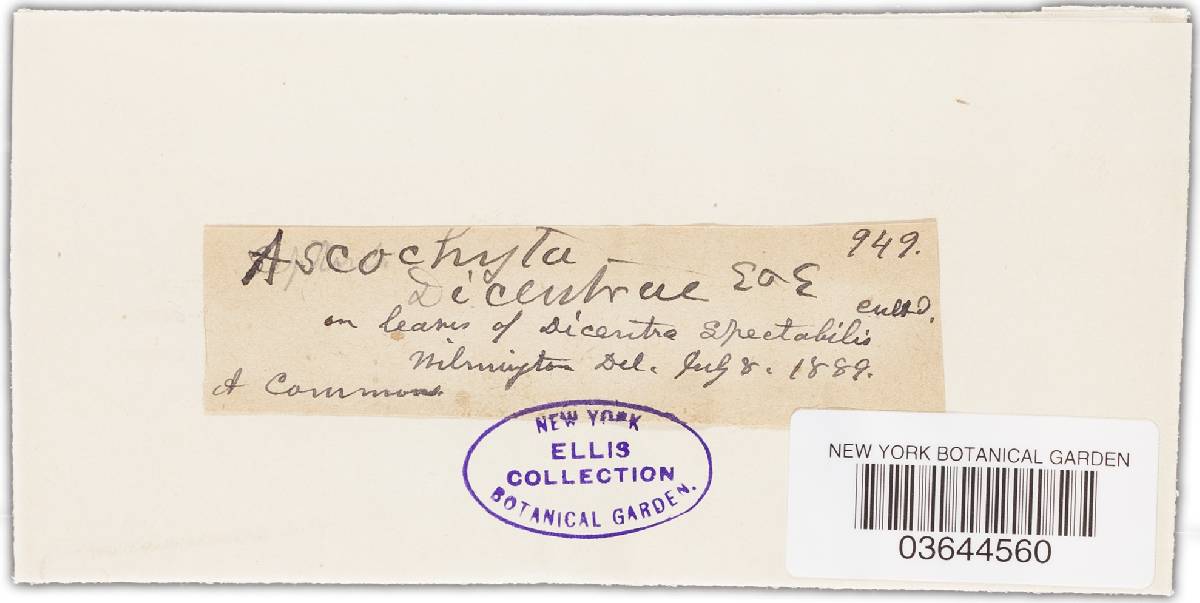 Ascochyta 949.
Dicentrae E & E
cult'd.
on leaves of Dicentra Spectabilis
Wilmington Del. July 8. 1889.
A Commons
NEW YORK
ELLIS
COLLECTION
BOTANICAL GARDEN.
NEW YORK BOTANICAL GARDEN
03644560